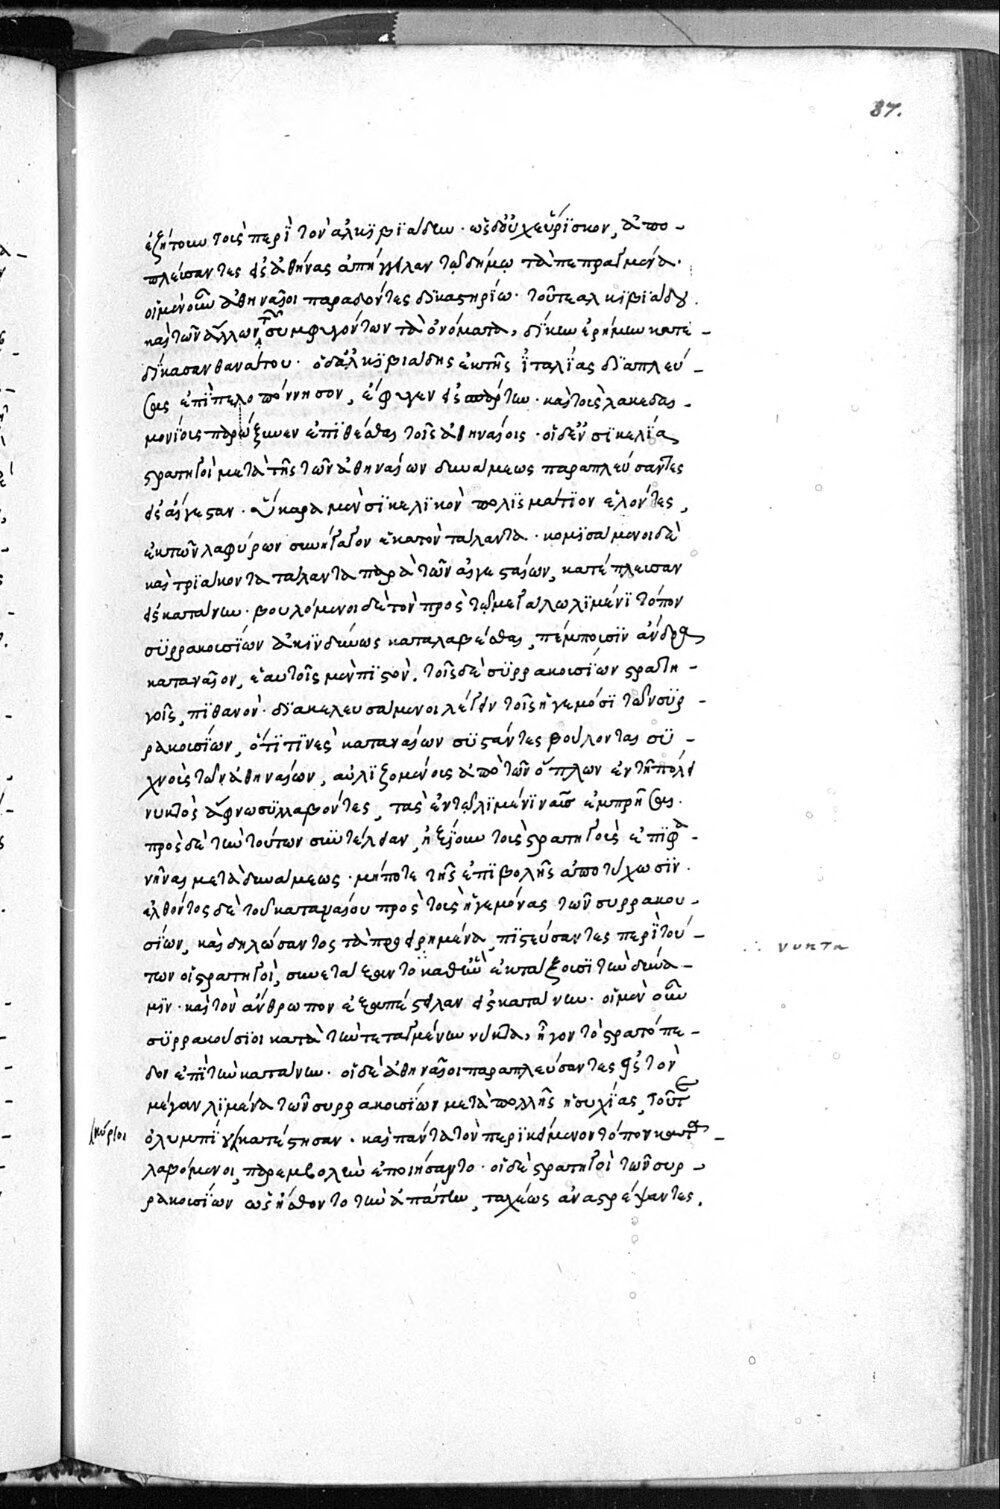 ἐζήτουν τοὺς περὶ τὸν ἀλκϊβϊάδην · ὡς δ' οὐχ εὕρϊσκον, ἀπο-
πλεύσαντες εἰς ἀθήνας ἀπήγγειλαν τῷ δήμῳ τὰ πεπραγμένα ·
οἱ μὲν οὖν ἀθηναῖοι παραδόντες δικαστηρίῳ · τοῦ τε ἀλκϊβϊάδου
καὶ τῶν ἄλλων τῶν συμφυγόντων τὰ ὀνόματα, δίκην ἐρήμην κατε-
δίκασαν θανάτου · ὁ δ' ἀλκϊβιάδης ἐκ τῆς ἰταλίας δϊαπλεύ-
σας ἐπὶ πελοπόννησον, ἔφυγεν εἰς σπάρτην · καὶ τοὺς λακεδαι-
μονίους παρώξυνεν ἐπϊθέσθαι τοῖς ἀθηναίοις · οἱ δ' ἐν σϊκελίᾳ
στρατηγοὶ μετὰ τῆς τῶν ἀθηναίων δυνάμεως παραπλεύσαντες
εἰς αἴγεσταν · ὕκκαρα μὲν σϊκελϊκὸν πολϊσμάτϊον ἑλόντες,
ἐκ τῶν λαφύρων συνήγαγον ἑκατὸν τάλαντα · κομϊσάμενοι δὲ
καὶ τρϊάκοντα τάλαντα παρὰ τῶν αἰγεσταίων, κατέπλευσαν
εἰς κατάνην · βουλόμενοι δὲ τὸν πρὸς τῷ μεγάλῳ λϊμένϊ τόπον
σϋρρακουσίων ἀκϊνδύνως καταλαβέσθαι, πέμπουσϊν ἄνδρα
καταναῖον, ἑαυτοῖς μὲν πϊστὸν, τοῖς δὲ σϋρρακουσίων στρατη-
γοῖς, πϊθανόν · δϊακελευσάμενοι λέγειν τοῖς ἡγεμόσϊ τῶν σϋρ-
ρακουσϊων, ὅτϊ τϊνὲς καταναίων σϋστάντες βούλονται σϋ-
χνοὺς τῶν ἀθηναίων, αὐλϊζομένους ἀπὸ τῶν ὅπλων ἐν τῇ πόλει
νυκτὸς ἄφνω σϋλλαβόντες, τὰς ἐν τῷ λϊμένϊ ναῦς ἐμπρῆσαι ·
πρὸς δὲ τὴν τούτων σϋντέλειαν, ἠξίουν τοὺς στρατηγοὺς ἐπϊφα-
νῆναι μετὰ δυνάμεως · μήποτε τῆς ἐπϊβολῆς ἀποτύχωσϊν ·
ἐλθόντος δὲ τοῦ καταναίου πρὸς τοὺς ἡγεμόνας τῶν συρρακου-
σίων, καὶ δηλώσαντος τὰ προειρημένα, πϊστεύσαντες περὶ τού-
των οἱ στρατηγοὶ, συνετάξαντο καθ' ἣν ἐκτάξουσϊ τὴν δύνα-
μϊν · καὶ τὸν ἄνθρωπον ἐξαπέστειλαν εἰς κατάνην · οἱ μὲν οὖν
σϋρρακούσϊοι κατὰ τὴν τεταγμένην νύκτα, ἦγον τὸ στρατόπε-
δον ἐπὶ τὴν κατάνην · οἱ δὲ ἀθηναῖοι παραπλεύσαντες εἰς τὸν
μέγαν λϊμένα τῶν συρρακουσίων μετὰ πολλῆς ἡσυχίας, τοῦ τε
ὀλυμπίου κατέστησαν · καὶ πάντα τὸν περϊκείμενον τόπον κατα-
λαβόμενοι, παρεμβολὴν ἐποιήσαντο · οἱ δὲ στρατηγοὶ τῶν συρ-
ρακουσίων ὡς ᾔσθοντο τὴν ἀπάτην, ταχέως ἀναστρέψαντες,
κύριοι
∴ νυκτα
87.